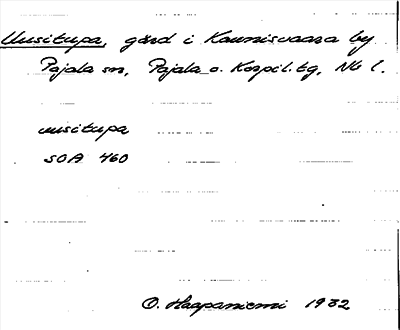 Uusitupa, gård i Kaunisvaara by
Pajala sn, Pajala o. Korpil. tg, Nb l.
uusitupa
SOA 460
O. Haapaniemi 1932